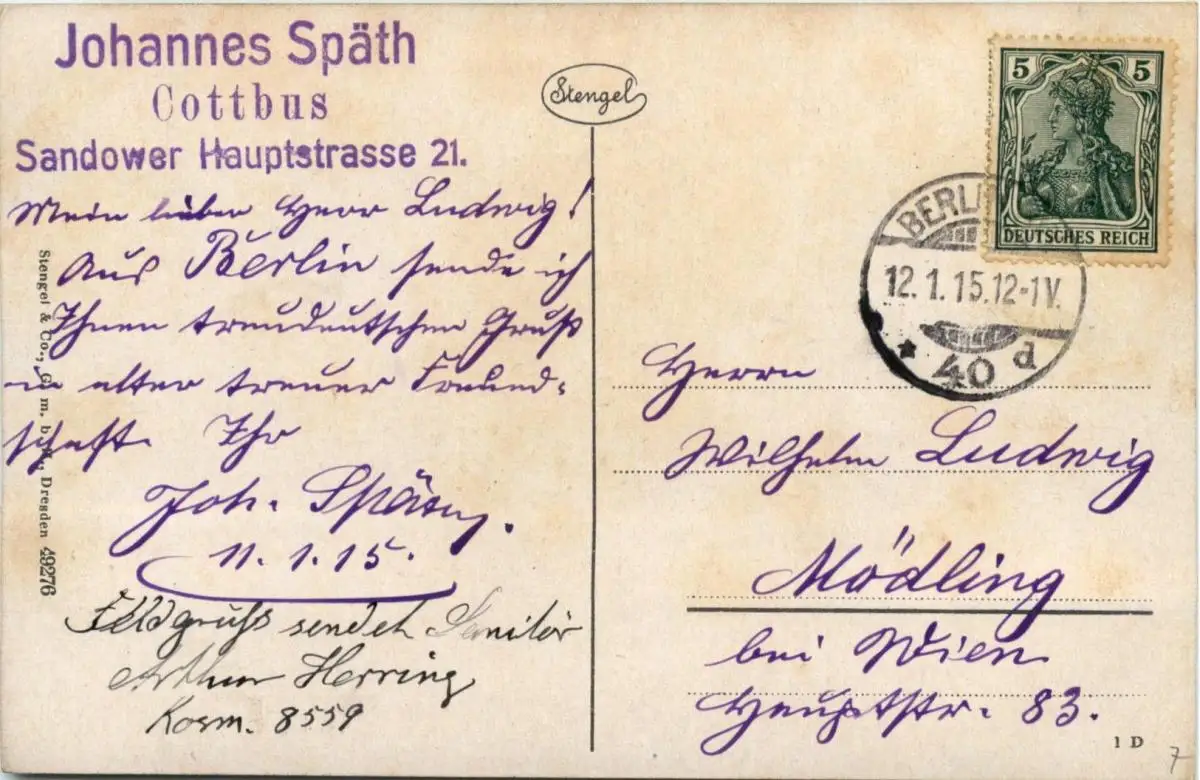 Johannes Späth
Cottbus
Sandower Hauptstrasse 21.
Mein lieber Herr Ludwig!
Aus Berlin sende ich
Ihnen treudeutschen Gruß
in alter treuer Freund-
schaft. Ihr
Joh. Späth.
11.1.15.
Feldgruss sendet Sanitär
Arthur Herring
Korm. 8559
Stengel & Co., G. m. b. H., Dresden 49276
Stengel
5 5
DEUTSCHES REICH
BERLIN
12.1.15.12-1V.
* 40 d
Herrn
Wilhelm Ludwig
Mödling
bei Wien
Hauptstr. 83.
1 D
7